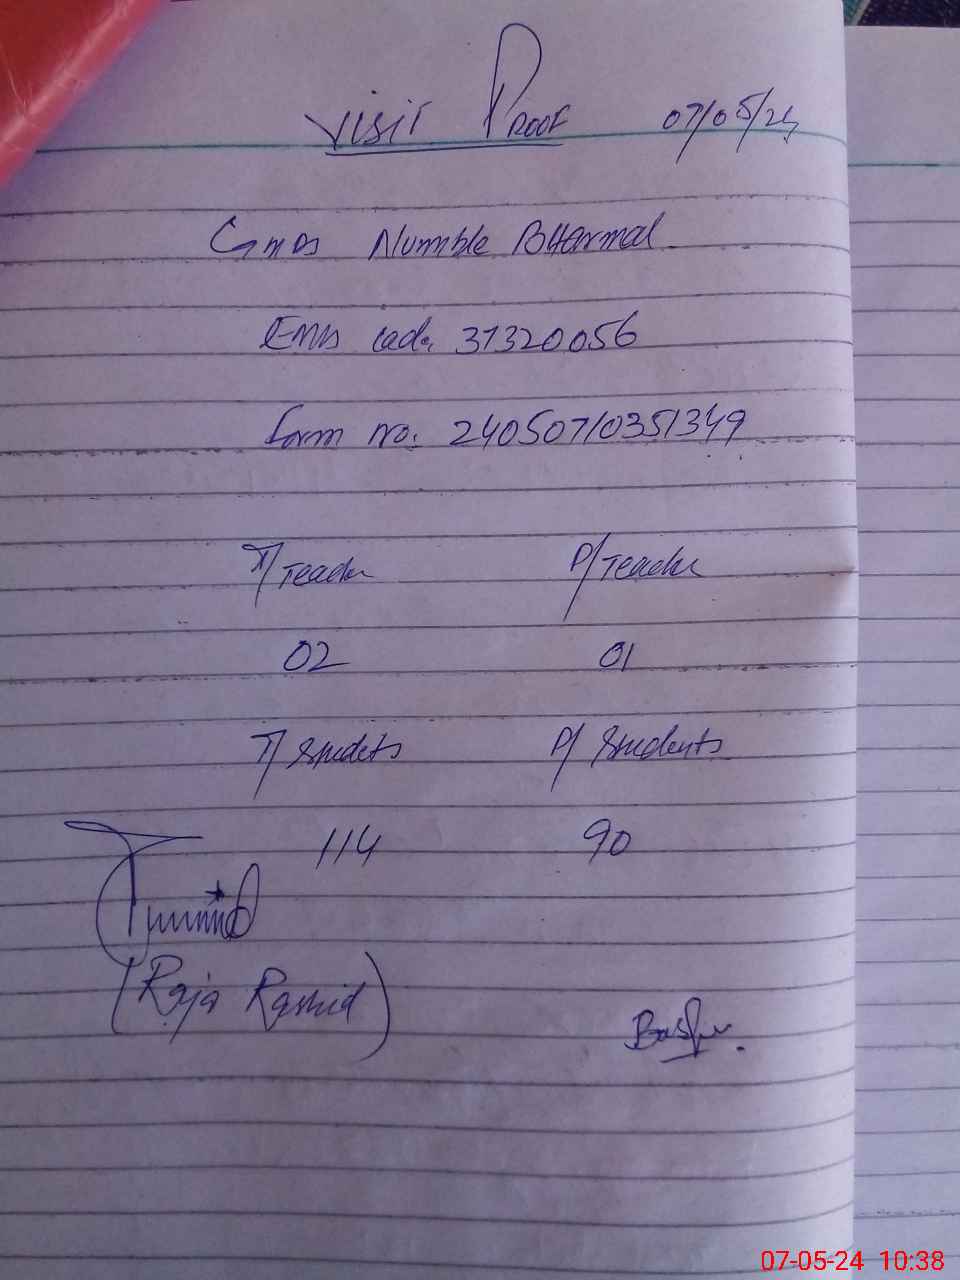 Visit Proof 07/05/24
GMPS Nummble Bhermal
EMIS code. 31320056
Form no. 24050710351349
T/Teacher P/Teacher
02 01
T/Studets P/Students
114 90
(Raja Rashid)
07-05-24 10:38